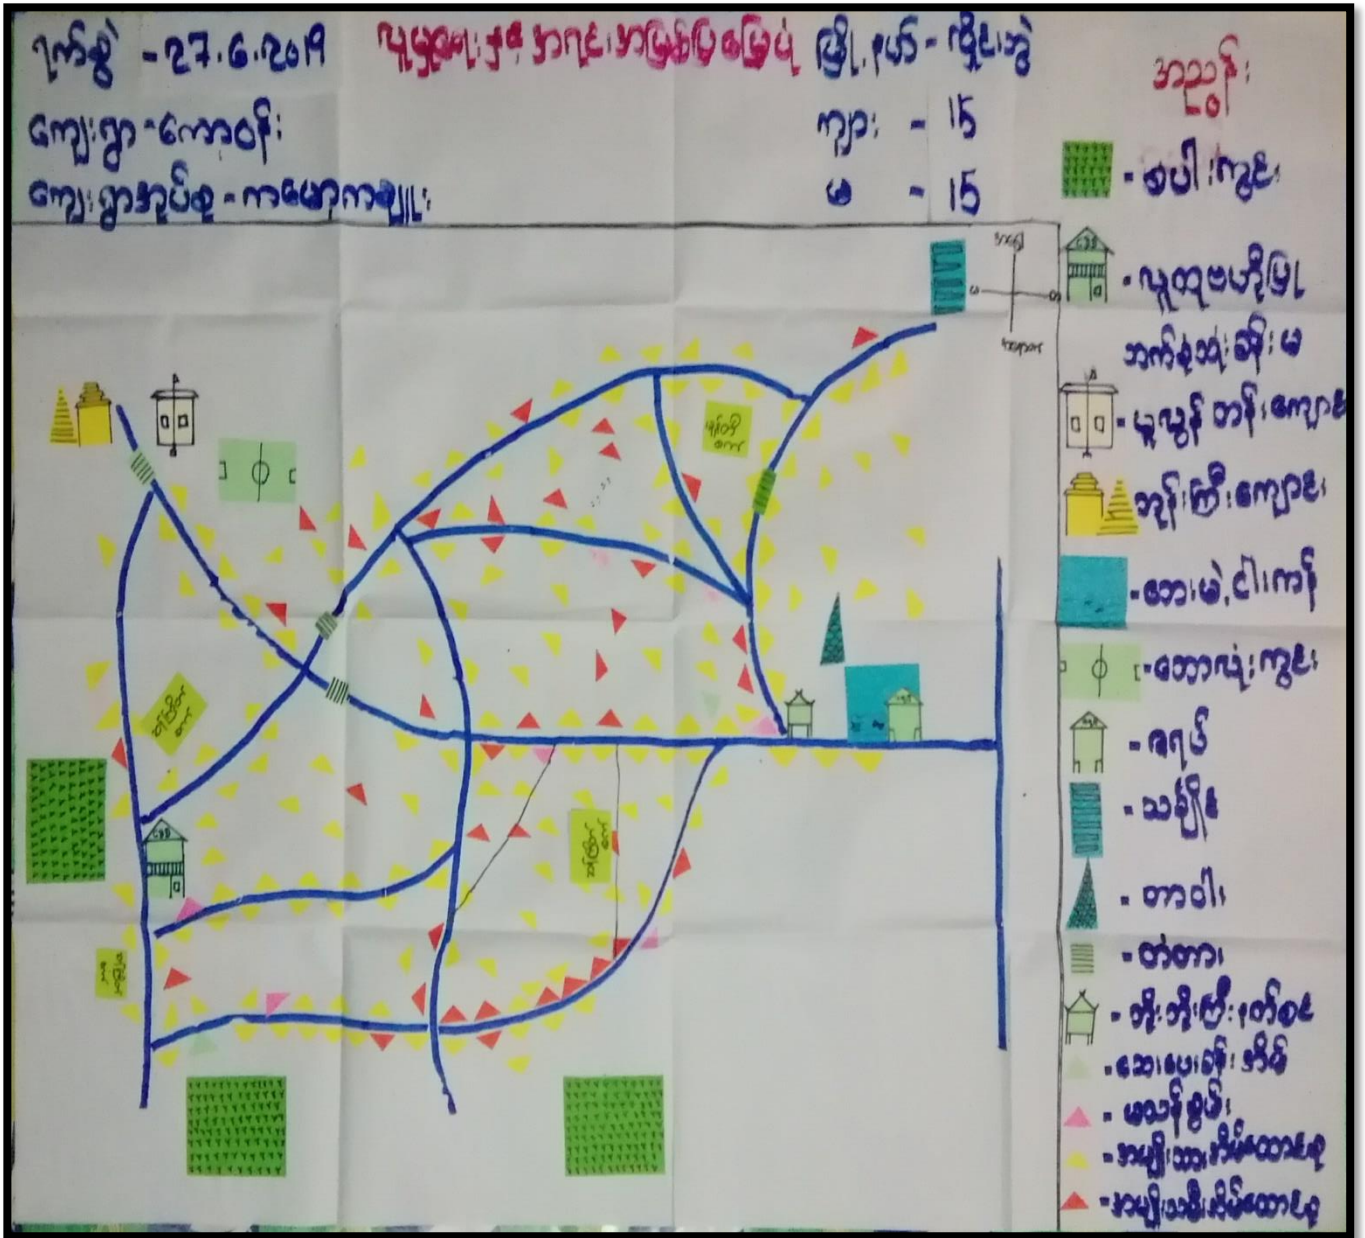 ရက်စွဲ - 27.6.2019
လူမှုရေးနှင့်အရင်းအမြစ်ပြမြေပုံ
မြို့နယ် - လှိုင်းဘွဲ
ကျေးရွာ - ကော့ဝန်း
ကျား - 15
ကျေးရွာအုပ်စု - ကမော့ကချူး
မ - 15
အညွှန်း
- စပါးကွင်း
CDD
- လူထုဗဟိုပြု
ဘက်စုံသုံးခန်းမ
- မူလွန်တန်းကျောင်း
- ဘုန်းကြီးကျောင်း
- ဘေးမဲ့ငါးကန်
- ဘောလုံးကွင်း
- ဇရပ်
- သင်္ချိုင်း
- တာဝါ
- တံတား
- ဘိုးဘိုးကြီးနတ်စင်
- ဆေးပေးခန်းအိမ်
- မသန်စွမ်း
- အမျိုးသားအိမ်ထောင်စု
- အမျိုးသမီးအိမ်ထောင်စု
CDD